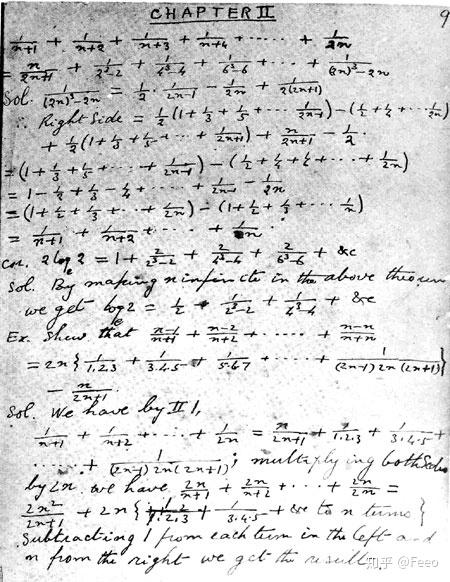 CHAPTER II
9
1/(n+1) + 1/(n+2) + 1/(n+3) + 1/(n+4) + ..... + 1/2n
= n/(2n+1) + 1/(2³-2) + 1/(4³-4) + 1/(6³-6) + ... + 1/((2n)³-2n)
Sol. 1/((2n)³-2n) = 1/2 · 1/(2n-1) - 1/2n + 1/(2(2n+1))
∴ Right Side = 1/2(1 + 1/3 + 1/5 + ... 1/(2n-1)) - (1/2 + 1/4 + ... 1/2n)
+ 1/2(1 + 1/3 + 1/5 + ... + 1/(2n+1)) + n/(2n+1) - 1/2.
= (1 + 1/3 + 1/5 + ... + 1/(2n-1)) - (1/2 + 1/4 + 1/6 + ... + 1/2n)
= 1 - 1/2 + 1/3 - 1/4 + ... + 1/(2n-1) - 1/2n
= (1 + 1/2 + 1/3 + ... + 1/2n) - (1 + 1/2 + 1/3 + ... 1/n)
= 1/(n+1) + 1/(n+2) + .... + 1/2n.
Cor. 2 logₑ2 = 1 + 2/(2³-2) + 2/(4³-4) + 2/(6³-6) + &c
Sol. By making n infinite in the above theorem
we get logₑ2 = 1/2 + 1/(2³-2) + 1/(4³-4) + &c
Ex. Shew that (n-1)/(n+1) + (n-2)/(n+2) + ..... + (n-n)/(n+n)
= 2n{1/1.2.3 + 1/3.4.5 + 1/5.6.7 + ... + 1/((2n-1)2n(2n+1))}
- n/(2n+1).
Sol. We have by II 1,
1/(n+1) + 1/(n+2) + .... + 1/2n = n/(2n+1) + 1/1.2.3 + 1/3.4.5 +
..... + 1/((2n-1)2n(2n+1)); multiplying both sides
by 2n we have 2n/(n+1) + 2n/(n+2) + ... + 2n/2n =
2n²/(2n+1) + 2n{1/1.2.3 + 1/3.4.5 + &c to n terms}
Subtracting 1 from each term in the left and
n from the right we get the result.
知乎 @Feeo